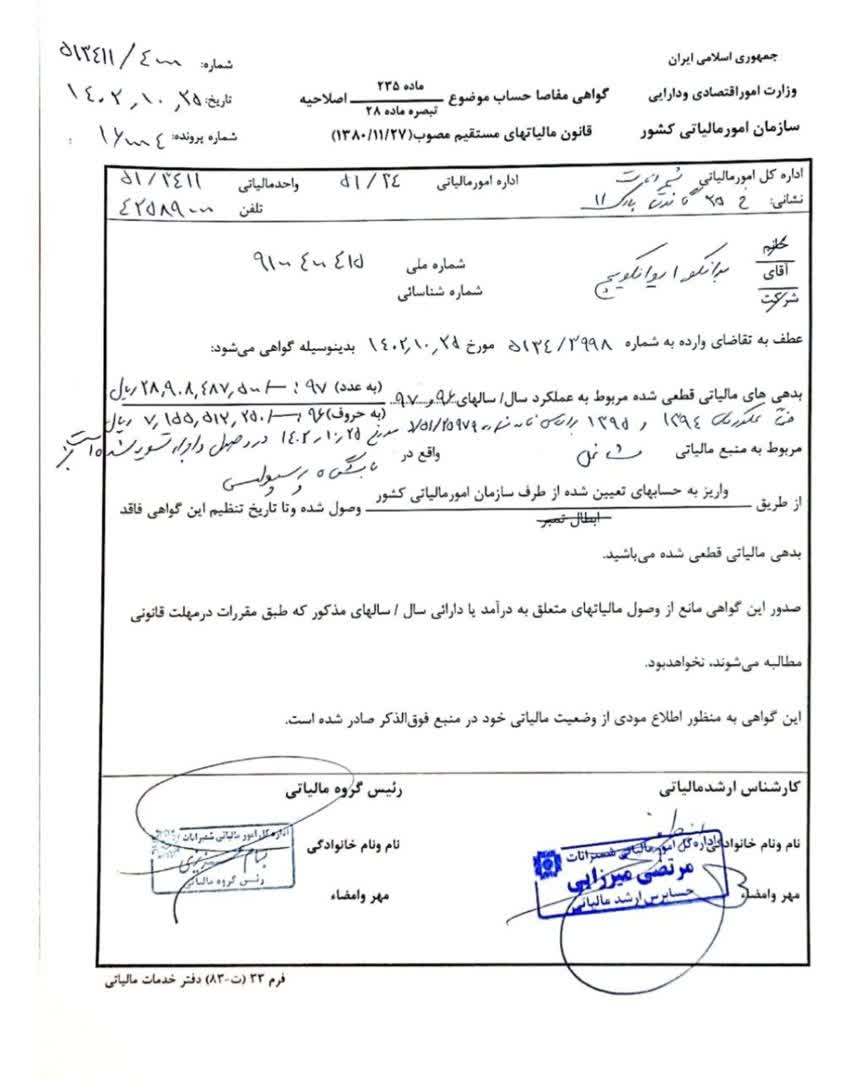 جمهوری اسلامی ایران
وزارت اموراقتصادی ودارایی
سازمان امورمالیاتی کشور
گواهی مفاصا حساب موضوع ماده ۲۳۵ / تبصره ماده ۲۸ اصلاحیه
قانون مالیاتهای مستقیم مصوب(۱۳۸۰/۱۱/۲۷)
شماره: ۵۱۳۴۱۱/۴۰۰۰
تاریخ: ۱۴۰۲,۱۰,۲۵
شماره پرونده:
اداره کل امورمالیاتی شمیرانات اداره امورمالیاتی ۵۱/۲۴ واحدمالیاتی ۵۱/۲۴۱۱
نشانی: خ ۲۵ گاندی پلاک ۱۱ تلفن ۴۲۵۸۹۰۰۰
خانم
آقای برانکو ایوانکویچ شماره ملی
شرکت شماره شناسائی
عطف به تقاضای وارده به شماره ۵۱۲۴/۲۹۹۸ مورخ ۱۴۰۲,۱۰,۲۵ بدینوسیله گواهی می‌شود:
بدهی های مالیاتی قطعی شده مربوط به عملکرد سال/ سالهای ۹۶ و ۹۷ (به عدد) ۹۷: ۲۸,۹۰۸,۴۸۷,۵۰۰ ریال
(به حروف) ۹۶: ۷,۱۵۵,۵۱۲,۲۵۰ ریال
ضمناً عملکردهای ۱۳۹۴ و ۱۳۹۵ براساس نامه شماره ۷/۵۱/۲۵۹۷۹ مورخ ۱۴۰۲,۱۰,۲۵ در وصول و اجرا تسویه شده است
مربوط به منبع مالیاتی مشاغل واقع در باشگاه پرسپولیس
از طریق واریز به حسابهای تعیین شده از طرف سازمان امورمالیاتی کشور / ابطال تمبر وصول شده وتا تاریخ تنظیم این گواهی فاقد
بدهی مالیاتی قطعی شده می‌باشید.
صدور این گواهی مانع از وصول مالیاتهای متعلق به درآمد یا دارائی سال / سالهای مذکور که طبق مقررات درمهلت قانونی
مطالبه می‌شوند، نخواهدبود.
این گواهی به منظور اطلاع مودی از وضعیت مالیاتی خود در منبع فوق‌الذکر صادر شده است.
کارشناس ارشدمالیاتی
نام ونام خانوادگی
اداره کل امور مالیاتی شمیرانات
مرتضی میرزایی
حسابرس ارشد مالیاتی
مهر وامضاء
رئیس گروه مالیاتی
نام ونام خانوادگی
اداره کل امور مالیاتی شمیرانات
رئیس گروه مالیاتی
مهر وامضاء
فرم ۲۳ (ت-۸۳) دفتر خدمات مالیاتی